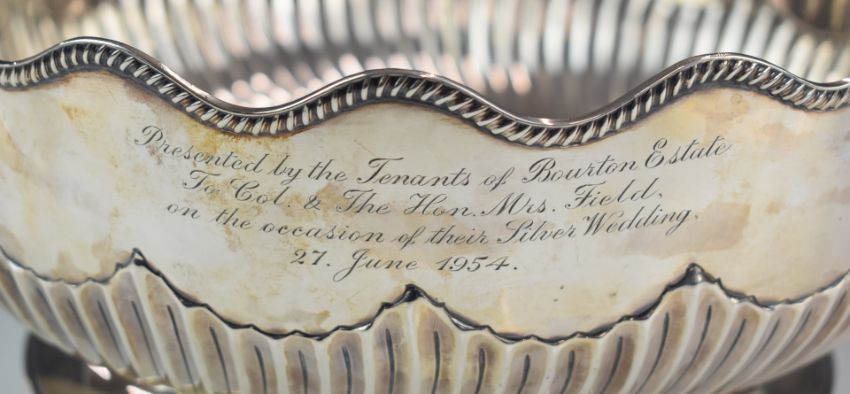 Presented by the Tenants of Bourton Estate
To Col. & The Hon. Mrs. Field,
on the occasion of their Silver Wedding.
27. June 1954.